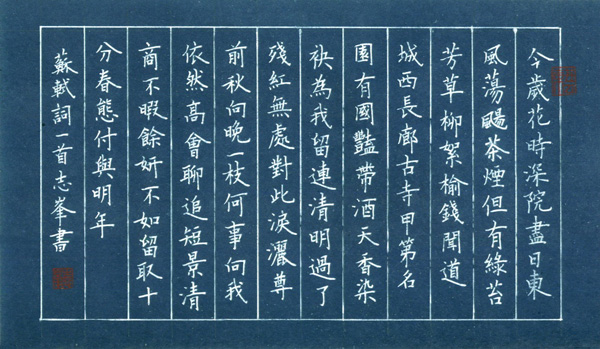 今歲花時深院盡日東
風蕩颺茶煙但有綠苔
芳草柳絮榆錢聞道
城西長廊古寺甲第名
園有國豔帶酒天香染
袂為我留連清明過了
殘紅無處對此淚灑尊
前秋向晚一枝何事向我
依然高會聊追短景清
商不暇餘妍不如留取十
分春態付與明年
蘇軾詞一首志峯書